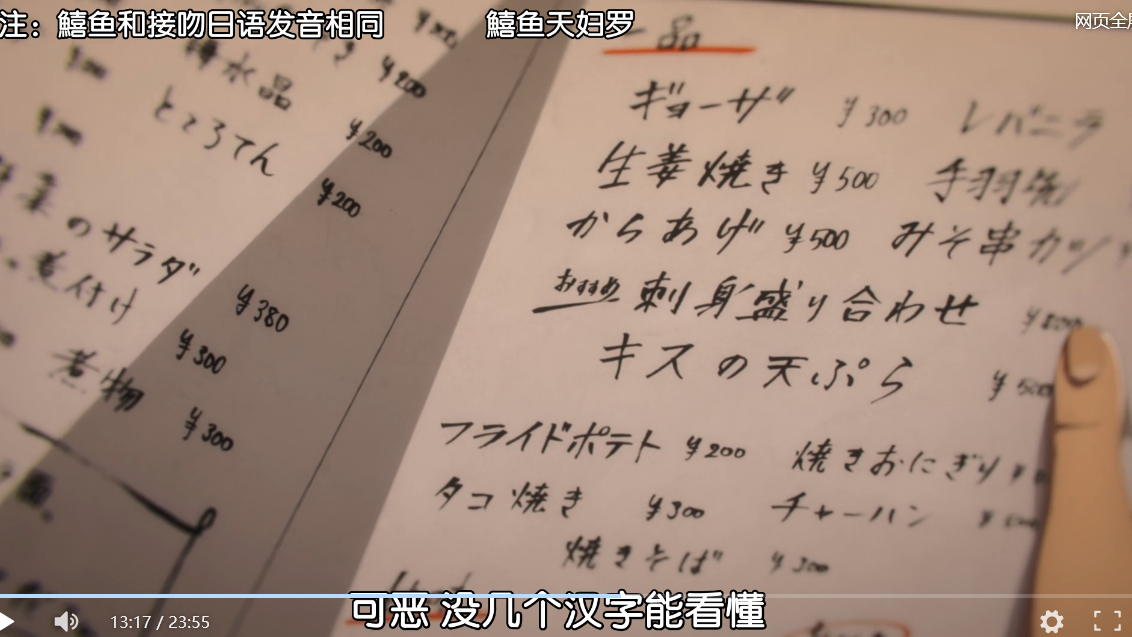 注：鱚鱼和接吻日语发音相同
鱚鱼天妇罗
网页全
一品
¥200
水晶
ところてん ¥200
¥200
のサラダ
煮付け ¥380
¥300
煮物 ¥300
ギョーザ ¥300 レバニラ
生姜焼き ¥500 手羽先
からあげ ¥500 みそ串カツ
おすすめ 刺身盛り合わせ ¥800
キスの天ぷら ¥500
フライドポテト ¥200 焼きおにぎり
タコ焼き ¥300 チャーハン
焼きそば ¥300
可恶 没几个汉字能看懂
13:17 / 23:55